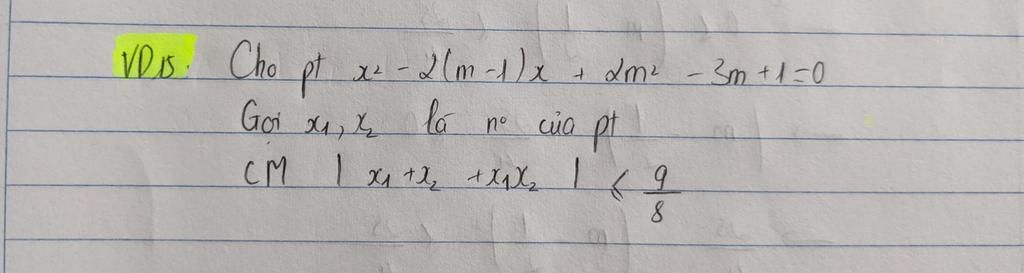 VD15. Cho pt x² - 2(m-1)x + 2m² - 3m + 1 = 0
Gọi x₁, x₂ là n° của pt
CM | x₁ + x₂ + x₁x₂ | ≤ 9/8